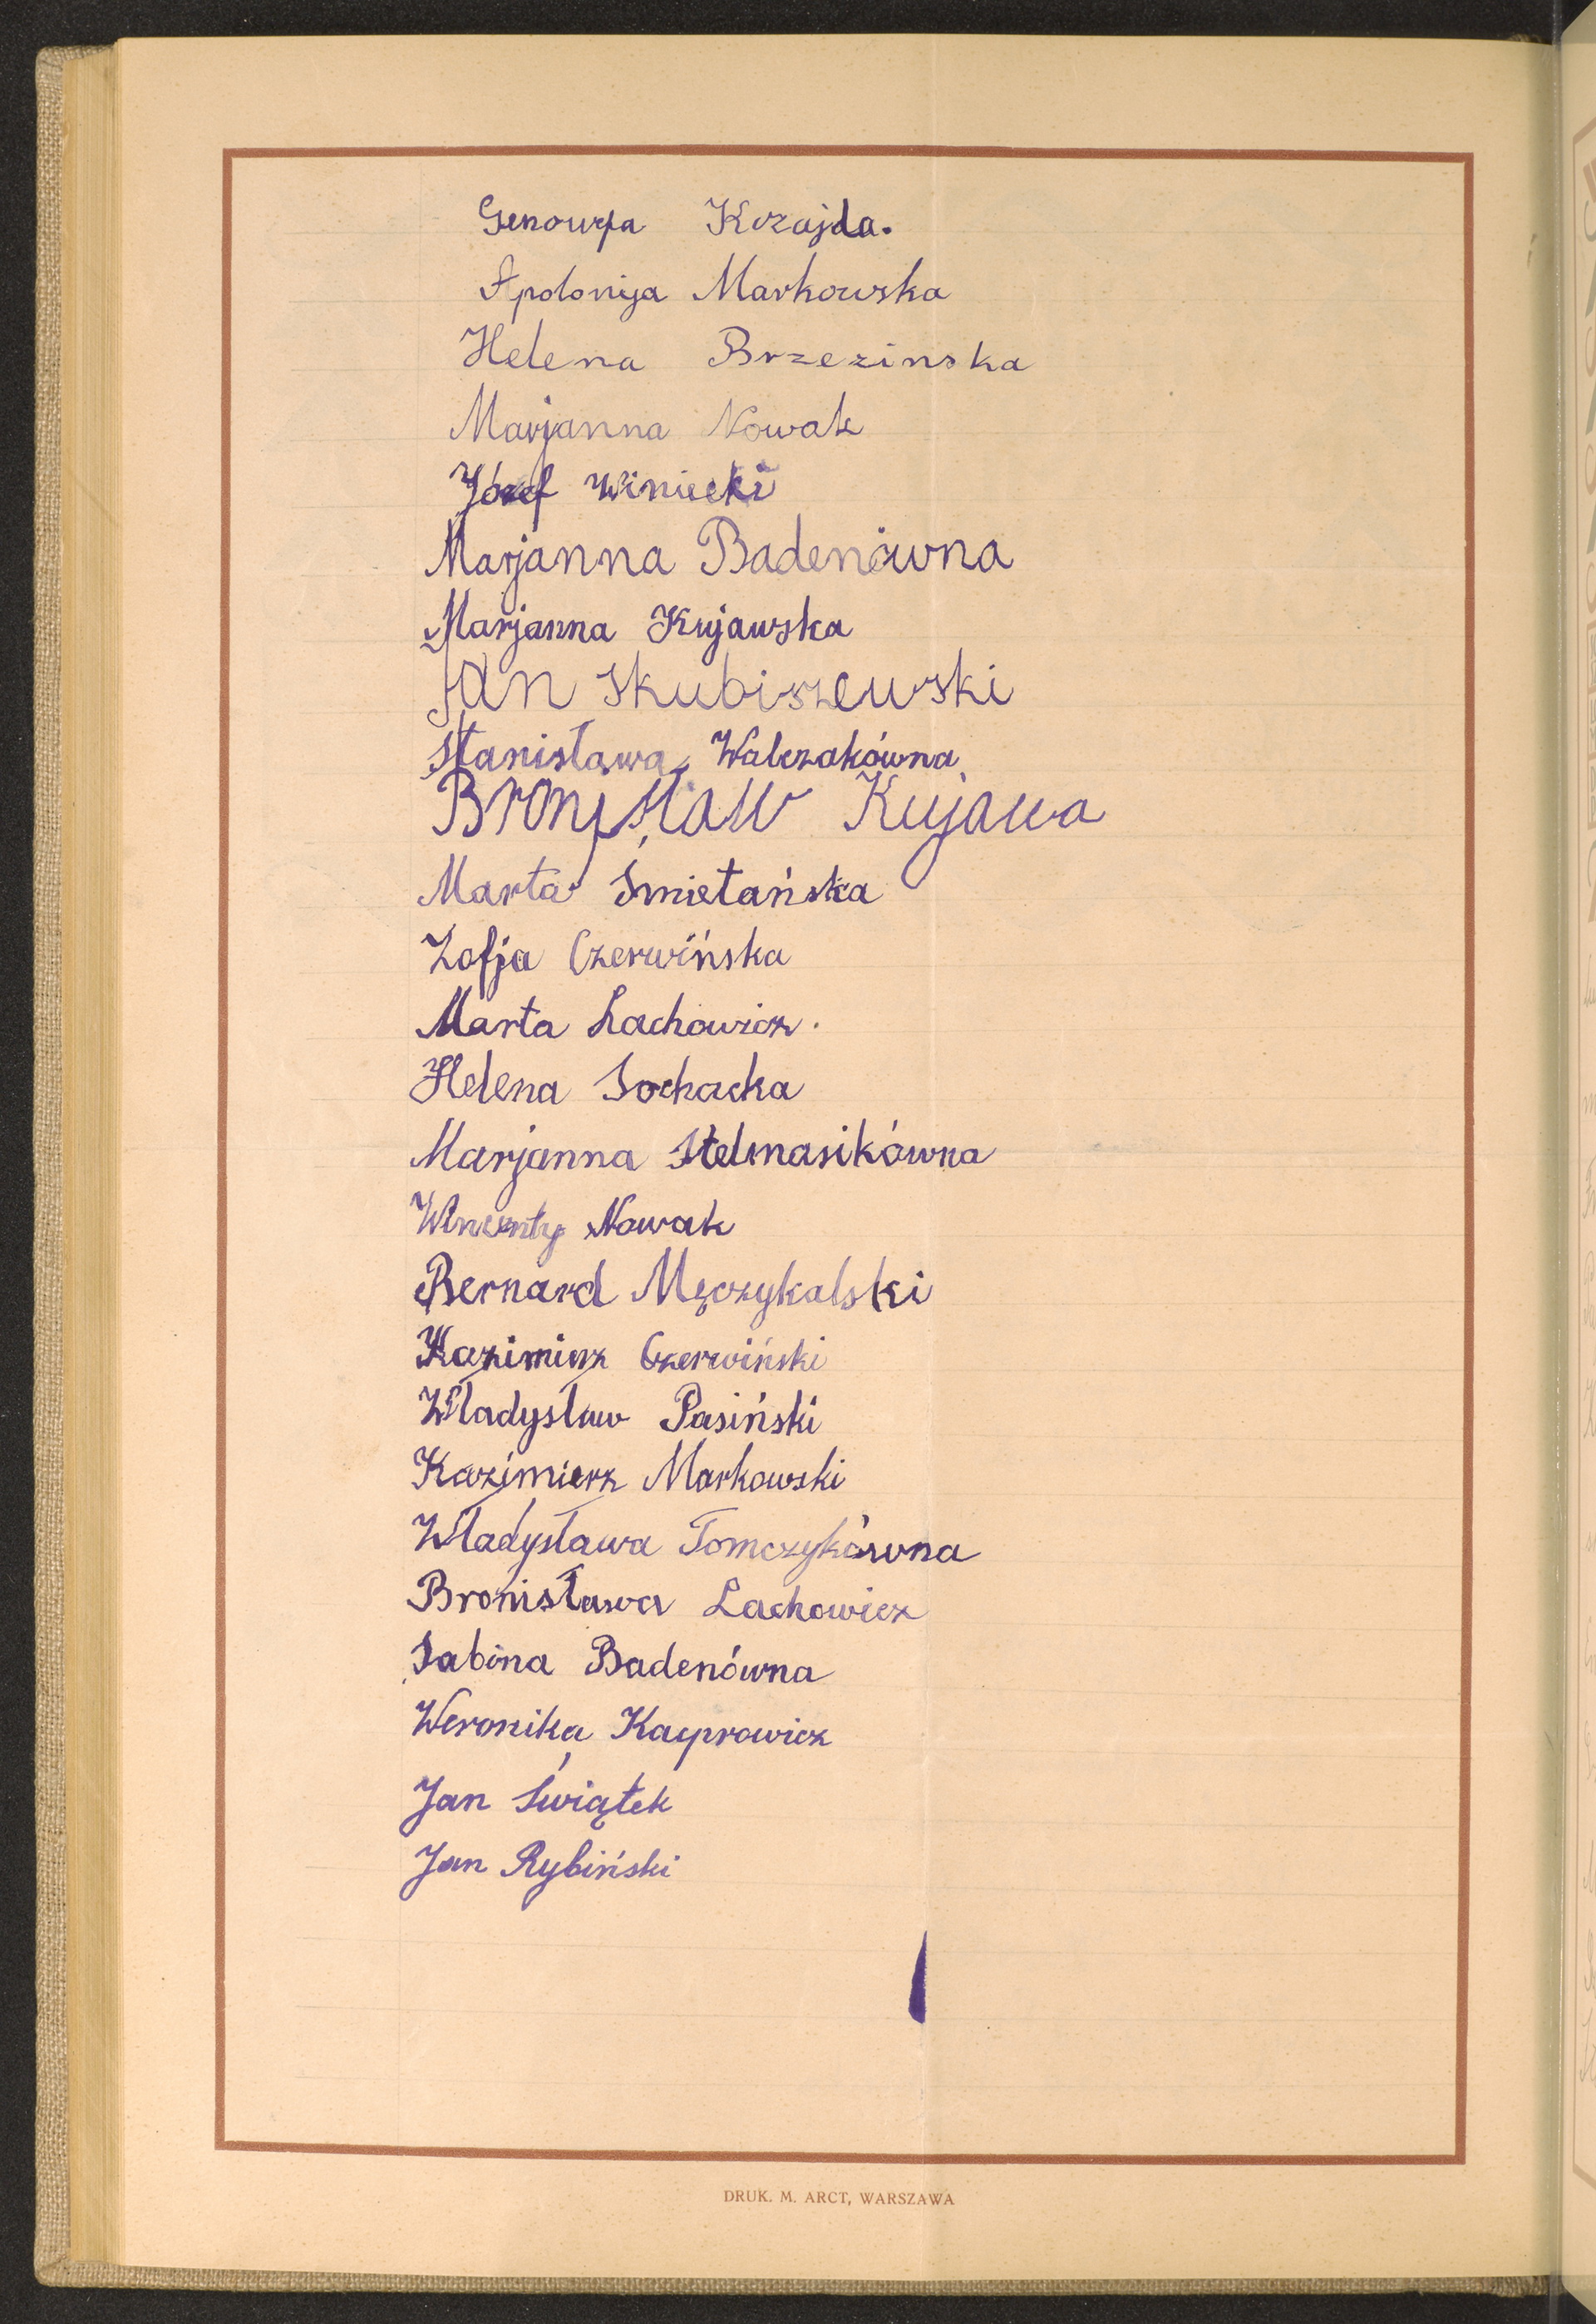 Genowefa Krzajda.
Apolonija Markowska
Helena Brzezinska
Marjanna Nowak
Józef Winiecki
Marjanna Badenówna
Marjanna Kujawska
Jan Skubiszewski
Stanisława Walczakówna
Bronisław Kujawa
Marta Smietańska
Zofja Czerwińska
Marta Lachowicz.
Helena Sochacka
Marjanna Stelmasikówna
Wincenty Nowak
Bernard Męczykalski
Kazimierz Czerwiński
Władysław Pasiński
Kazimierz Markowski
Władysława Tomczykówna
Bronisława Lachowicz
Sabina Badenówna
Weronika Kacprowicz
Jan Świątek
Jan Rybiński
DRUK. M. ARCT, WARSZAWA